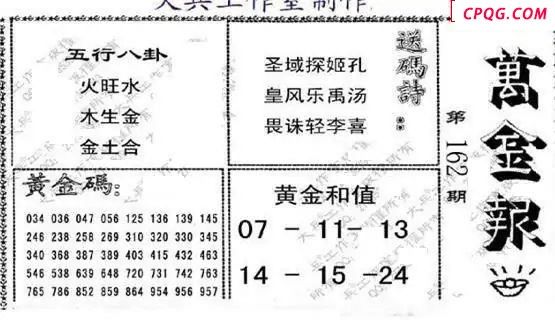 天兵工作室制作
CPQG.COM
五行八卦
火旺水
木生金
金土合
送碼詩:
圣域探姬孔
皇风乐禹汤
畏诛轻李喜
萬金報
第162期
黃金碼:
034 036 047 056 125 136 139 145
246 238 258 269 310 320 330 345
340 368 387 389 403 415 432 463
546 538 639 648 720 731 742 763
765 786 852 859 864 954 956 957
黄金和值
07 - 11- 13
14 - 15 -24